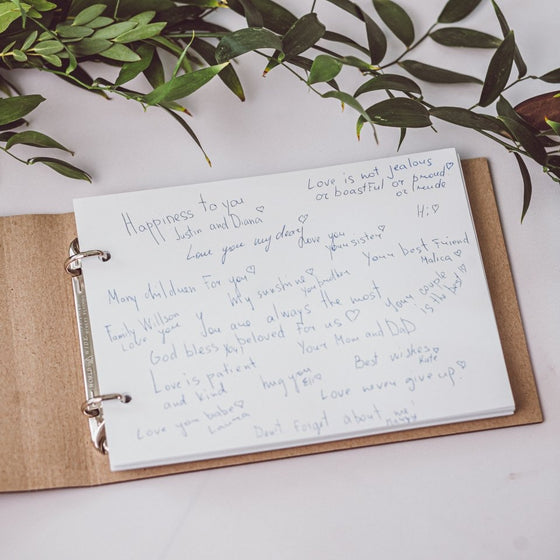 Love is not jealous
or boastful or proud
or rude
Happiness to you
Justin and Diana
Hi
Love you my dear
Love you
your sister
Your best Friend
Malica
Many children for you
My sunshine
your brother
Your couple
is the best
Family Willson
Love you
You are always the most
beloved for us
God bless you
Your Mom and DaD
Love is patient
and kind
hug you
Best wishes
Kate
Love never give up
Love you babe
Laura
Don't forget about me